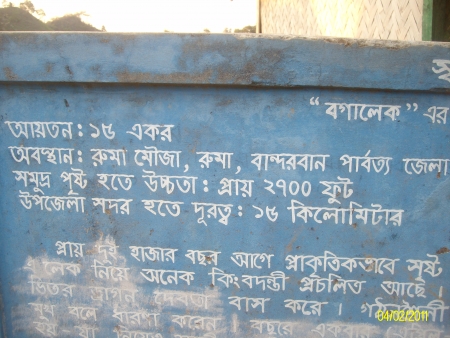 "বগালেক" এর
আয়তন : ১৫ একর
অবস্থান : রুমা মৌজা, রুমা, বান্দরবান পার্বত্য জেলা
সমুদ্র পৃষ্ট হতে উচ্চতা : প্রায় ২৭০০ ফুট
উপজেলা সদর হতে দূরত্ব : ১৫ কিলোমিটার
প্রায় দুই হাজার বছর আগে প্রাকৃতিকভাবে সৃষ্ট
লেক নিয়ে অনেক কিংবদন্তী প্রচলিত আছে ।
ভিতর ড্রাগন দেবতা বাস করে ।
মুখ বলে ধারণা করেন । বছরে একবার
04/02/2011